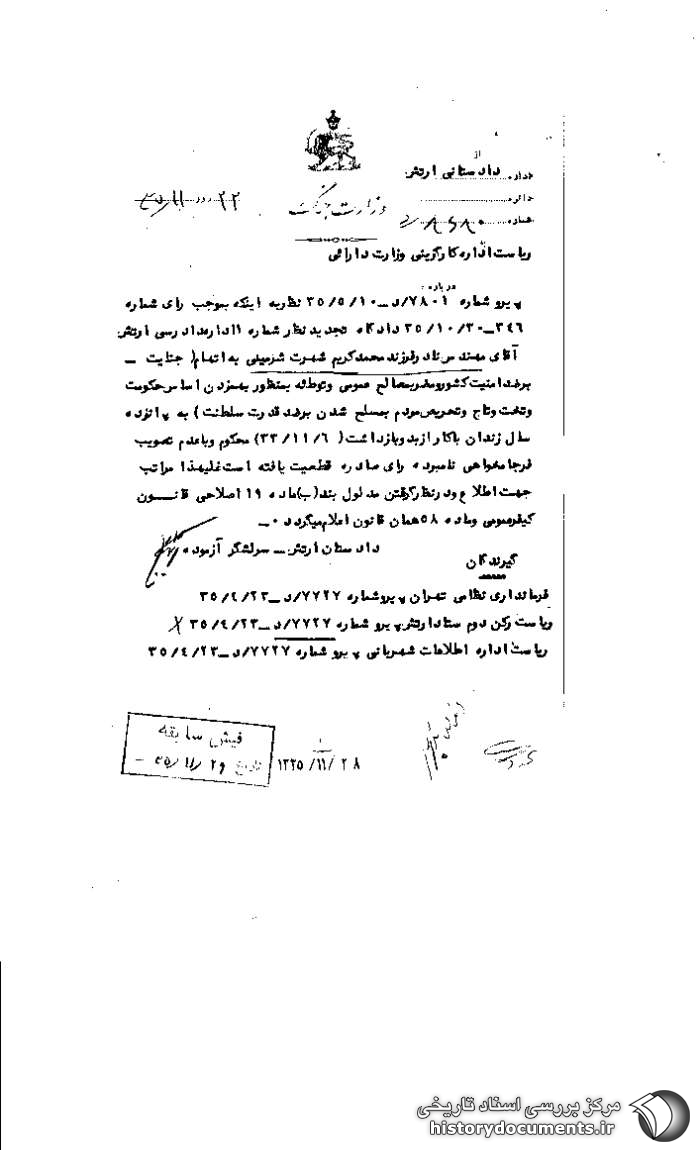 از
اداره دادستانی ارتش
دائره
شماره
وزارت جنگ
ریاست اداره کارگزینی وزارت دارائی
درباره:
پیرو شماره ۷۸۰۱/د_۳۵/۵/۱۰ نظربه اینکه بموجب رای شماره
۳۴۶_۳۵/۱۰/۳۰ دادگاه تجدید نظر شماره ۱ اداره دادرسی ارتش
آقای مهندس نادر فرزند محمد کریم شهرت شرمینی به اتهام ( جنایت _
برضد امنیت کشور و مضر بمصالح عمومی و توطئه بمنظور بهمزدن اساس حکومت
و تخت و تاج و تحریص مردم بمسلح شدن برضد قدرت سلطنت ) به پانزده
سال زندان با کار از بدو بازداشت ( ۳۳/۱۱/۶ ) محکوم و با عدم تصویب
فرجامخواهی نامبرده رای صادره قطعیت یافته است علیهذا مراتب
جهت اطلاع و در نظر گرفتن مدلول بند (ب) ماده ۱۹ اصلاحی قانون
کیفر عمومی و ماده ۵۸ همان قانون اعلام میگردد ۰_
دادستان ارتش _ سرلشگر آزموده
گیرندگان
فرمانداری نظامی تهران پیرو شماره ۷۷۲۷/د_۳۵/۴/۲۳
ریاست رکن دوم ستاد ارتش پیرو شماره ۷۷۲۷/د_۳۵/۴/۲۳
ریاست اداره اطلاعات شهربانی پیرو شماره ۷۷۲۷/د_۳۵/۴/۲۳
فیش سابقه
تاریخ ۳۵/۱۱/۲۹
۱۳۳۵/۱۱/۲۸
مرکز بررسی اسناد تاریخی
historydocuments.ir